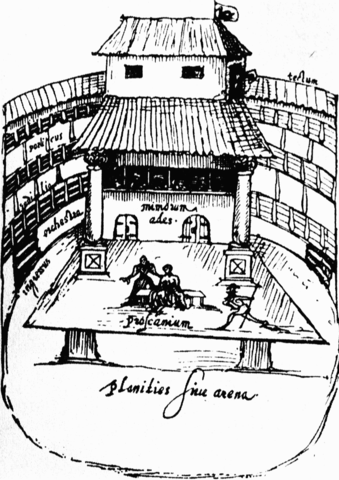 tectum
porticus
mimorum
ædes.
orchestra
ingressus
proscænium
planities siue arena.